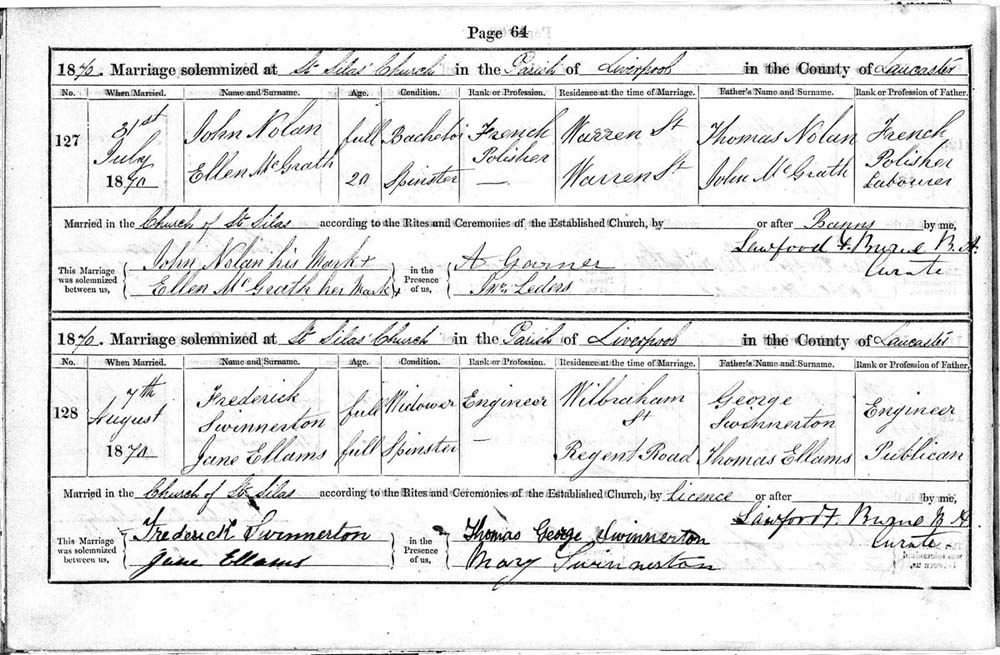 Page 64
1870. Marriage solemnized at St Silas' Church in the Parish of Liverpool in the County of Lancaster
No. When Married. Name and Surname. Age. Condition. Rank or Profession. Residence at the time of Marriage. Father's Name and Surname. Rank or Profession of Father.
127 31st July 1870 John Nolan full Bachelor French Polisher Warren St Thomas Nolan French Polisher
Ellen McGrath 20 Spinster — Warren St John McGrath Labourer
Married in the Church of St Silas according to the Rites and Ceremonies of the Established Church, by or after Banns by me,
Lawford F. Burne B.A. Curate
This Marriage was solemnized between us, John Nolan his Mark + in the Presence of us, A Garner
Ellen McGrath her Mark + Jno. Leders
1870. Marriage solemnized at St Silas' Church in the Parish of Liverpool in the County of Lancaster
No. When Married. Name and Surname. Age. Condition. Rank or Profession. Residence at the time of Marriage. Father's Name and Surname. Rank or Profession of Father.
128 7th August 1870 Frederick Swinnerton full Widower Engineer Wilbraham St George Swinnerton Engineer
Jane Ellams full Spinster — Regent Road Thomas Ellams Publican
Married in the Church of St Silas according to the Rites and Ceremonies of the Established Church, by Licence or after by me,
Lawford F. Burne B.A. Curate
This Marriage was solemnized between us, Frederick Swinnerton in the Presence of us, Thomas George Swinnerton
Jane Ellams Mary Swinnerton